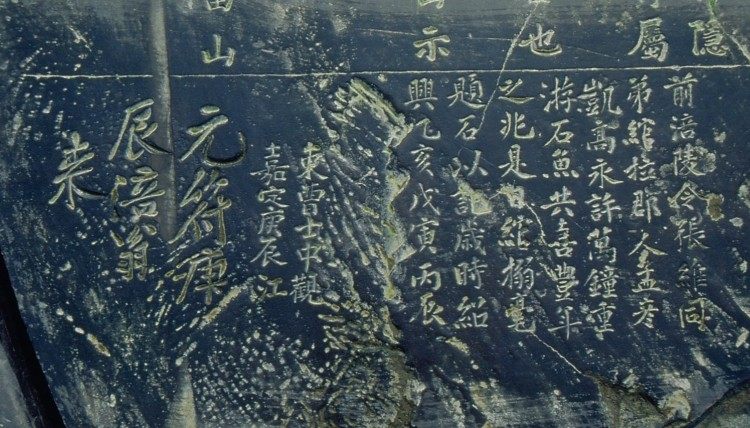 隐
屬
也
示
山
前涪陵令張維同
弟綰拉郡人孟彦
凱高永許萬鐘重
游石魚共喜豊年
之兆是日綰搦毫
題石以記歲時紹
興乙亥戊寅丙辰
嘉定庚辰江
東曹士中觀
元符庚
辰涪翁
来